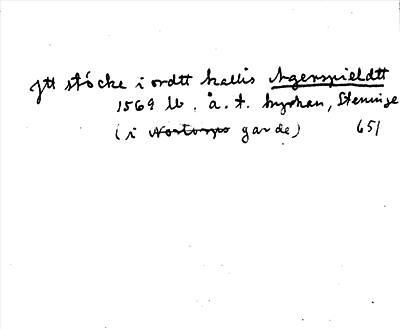 Jtt stöcke i ordtt kallis Agerspieldtt
1569 lb. å. t. byskan, Steninge
(i Nortorps garde) 651